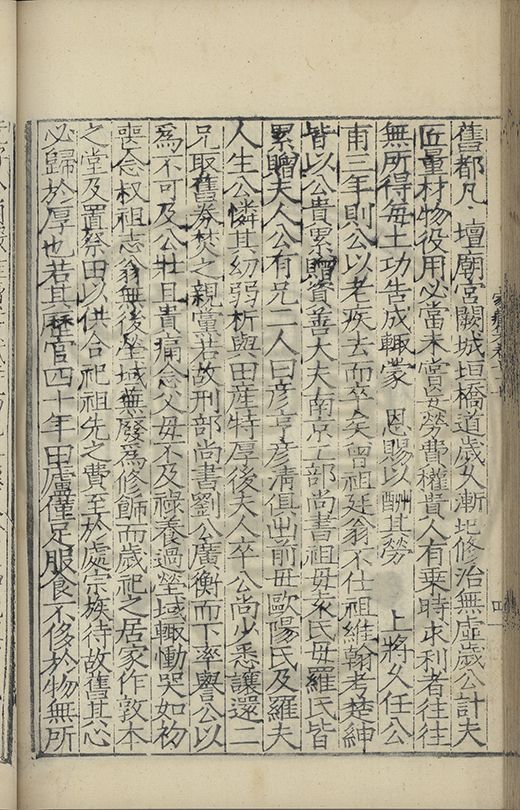 舊都凡壇廟宮闕城垣橋道歲久漸圮修治無虛歲公計夫
匠量材物役用必當未嘗妄勞費權貴人有乗時求利者往往
無所得每土功告成輒蒙 恩賜以酬其勞 上將久任公
甫三年則公以老疾去而卒矣曾祖廷翁不仕祖維翰考楚紳
皆以公貴累贈資善大夫南京工部尚書祖母袁氏母羅氏皆
累贈夫人公有兄二人曰彥亨彥清俱出前母歐陽氏及羅夫
人生公憐其幼弱析與田産特厚後夫人卒公尚少悉讓還二
兄取舊券焚之親黨若故刑部尚書劉公廣衡而下率譽公以
為不可及公壯且貴痛念父母不及祿養過塋域輒慟哭如初
喪念权祖志翁無後塋域蕪廢為修飾而歲祀之居家作敦本
之堂及置祭田以供合祀祖先之費至於處宗族待故舊其心
必歸於厚也若其歷官四十年田廬僅足服食不侈於物無所
四